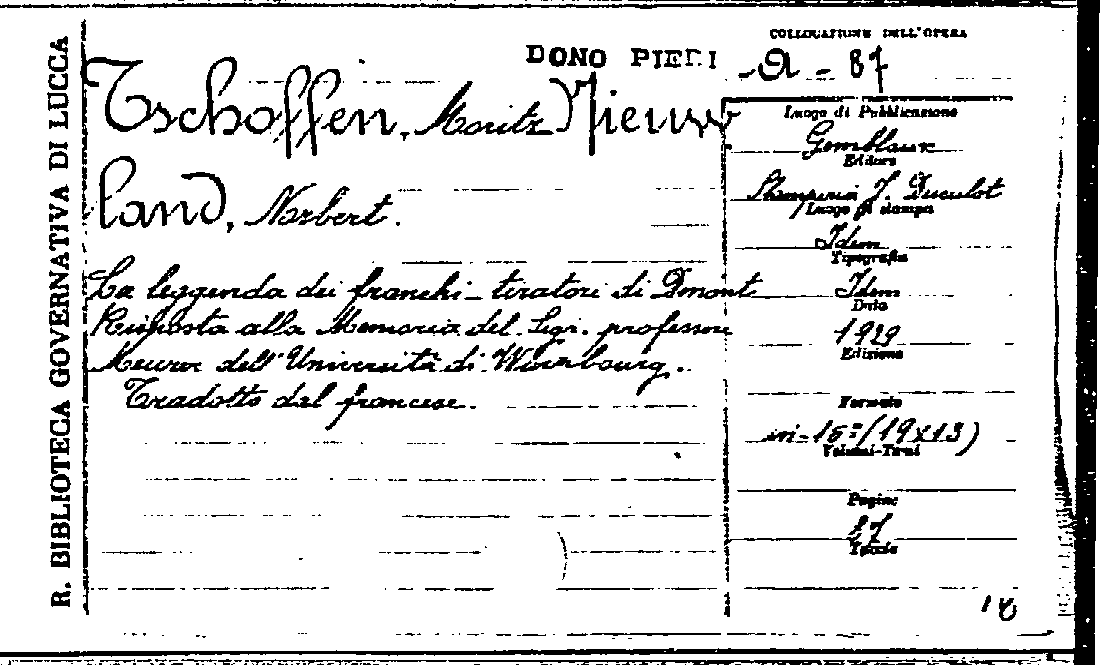 R. BIBLIOTECA GOVERNATIVA DI LUCCA
DONO PIERI
COLLOCAZIONE DELL'OPERA
A - 87
Tschoffen, Moritz Nieuw
land, Norbert.
La leggenda dei franchi-tiratori di Dinant
Risposta alla Memoria del Sigr. professore
Meurer dell'Università di Würzbourg.
Tradotto dal francese.
Luogo di Pubblicazione
Gembloux
Editore
Stamperia J. Duculot
Luogo di stampa
Idem
Tipografia
Idem
Data
1929
Edizione
Formato
in-16° (19x13)
Volumi-Tomi
Pagine
Tavole